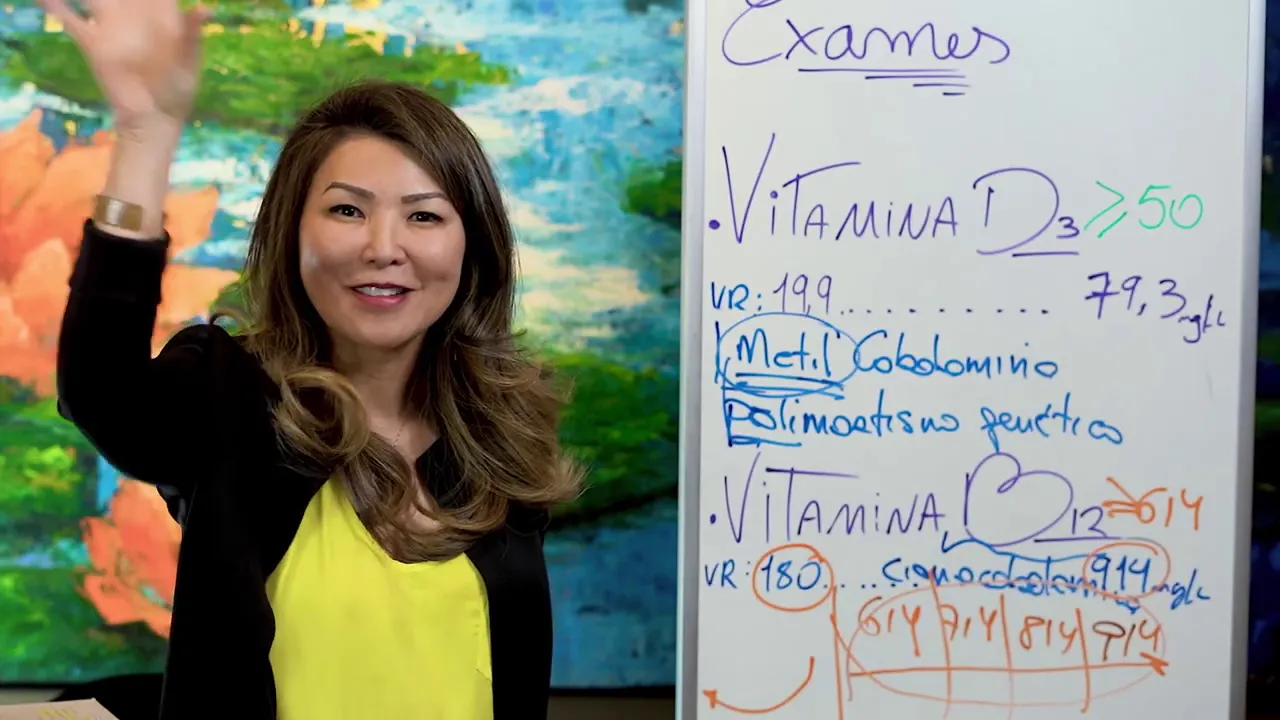 Exames
• VITAMINA D3 ≥50
VR: 19,9.......... 79,3 ng/L
Metil Cobolomino
Polimoetismo genético
• VITAMINA B12 ≥614
VR: 180..... cianocobolomino 914 ng/L
614 714 814 914